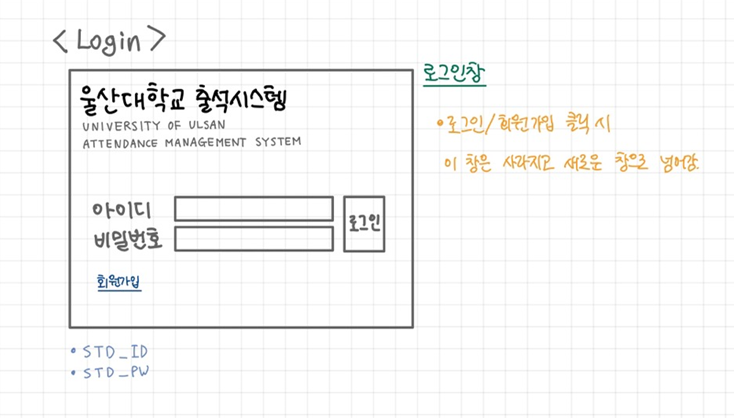 <Login>
울산대학교 출석시스템
UNIVERSITY OF ULSAN
ATTENDANCE MANAGEMENT SYSTEM
아이디
비밀번호
로그인
회원가입
• STD_ID
• STD_PW
로그인창
• 로그인/회원가입 클릭 시
이 창은 사라지고 새로운 창으로 넘어감.